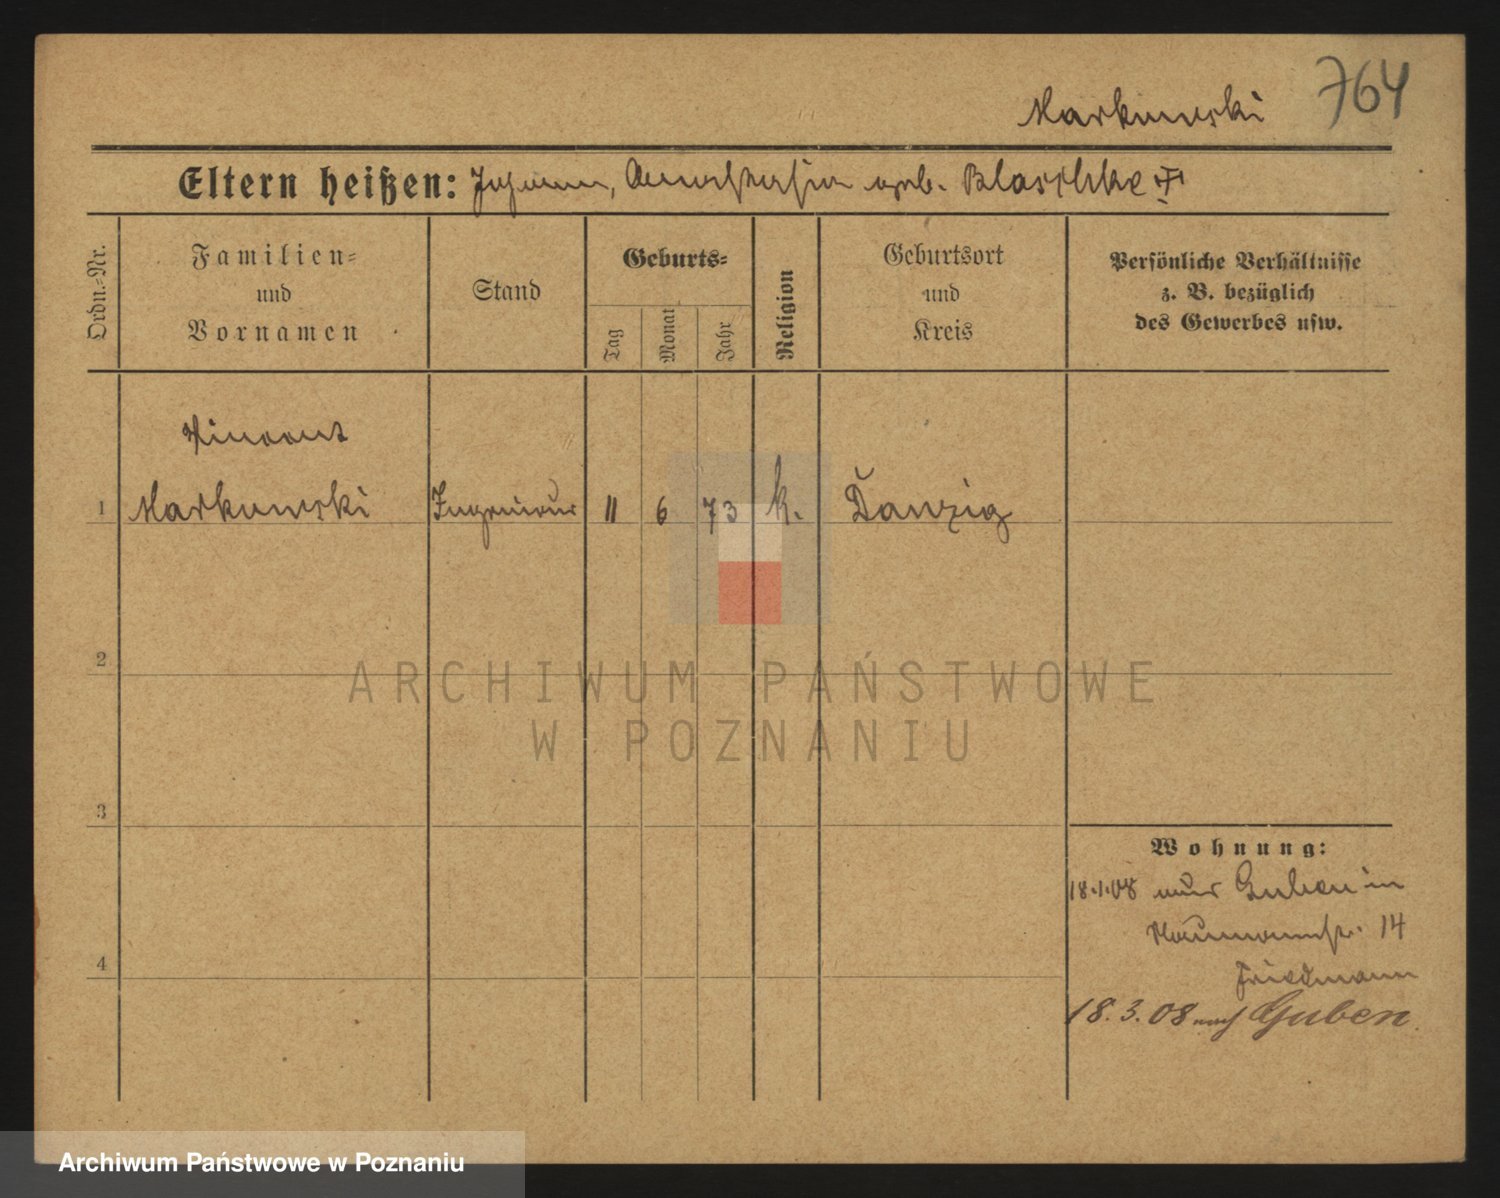 764
Markowski
Eltern heißen: Johann, Anastasia geb. Blaschke
Ordn.-Nr.
Familien-
und
Vornamen
Stand
Geburts-
Tag
Monat
Jahr
Religion
Geburtsort
und
Kreis
Persönliche Verhältnisse
z. B. bezüglich
des Gewerbes usw.
Vincent
1 Markowski Ingenieur 11 6 73 k. Danzig
2
ARCHIWUM PAŃSTWOWE
W POZNANIU
3
Wohnung:
18.1.08 aus Guben in
Naumannstr. 14
Friedmann
4
18.3.08 nach Guben
Archiwum Państwowe w Poznaniu